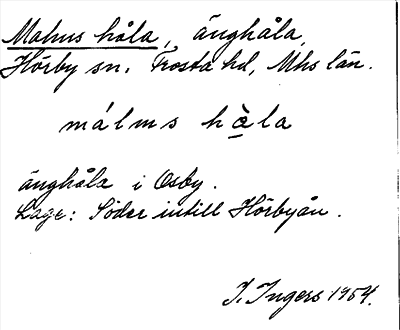 Malms håla, änghåla,
Hörby sn. Frosta hd, Mhs län.
málms hàla
änghåla i Osby.
Läge: Söder intill Hörbyån.
I. Ingers 1954.